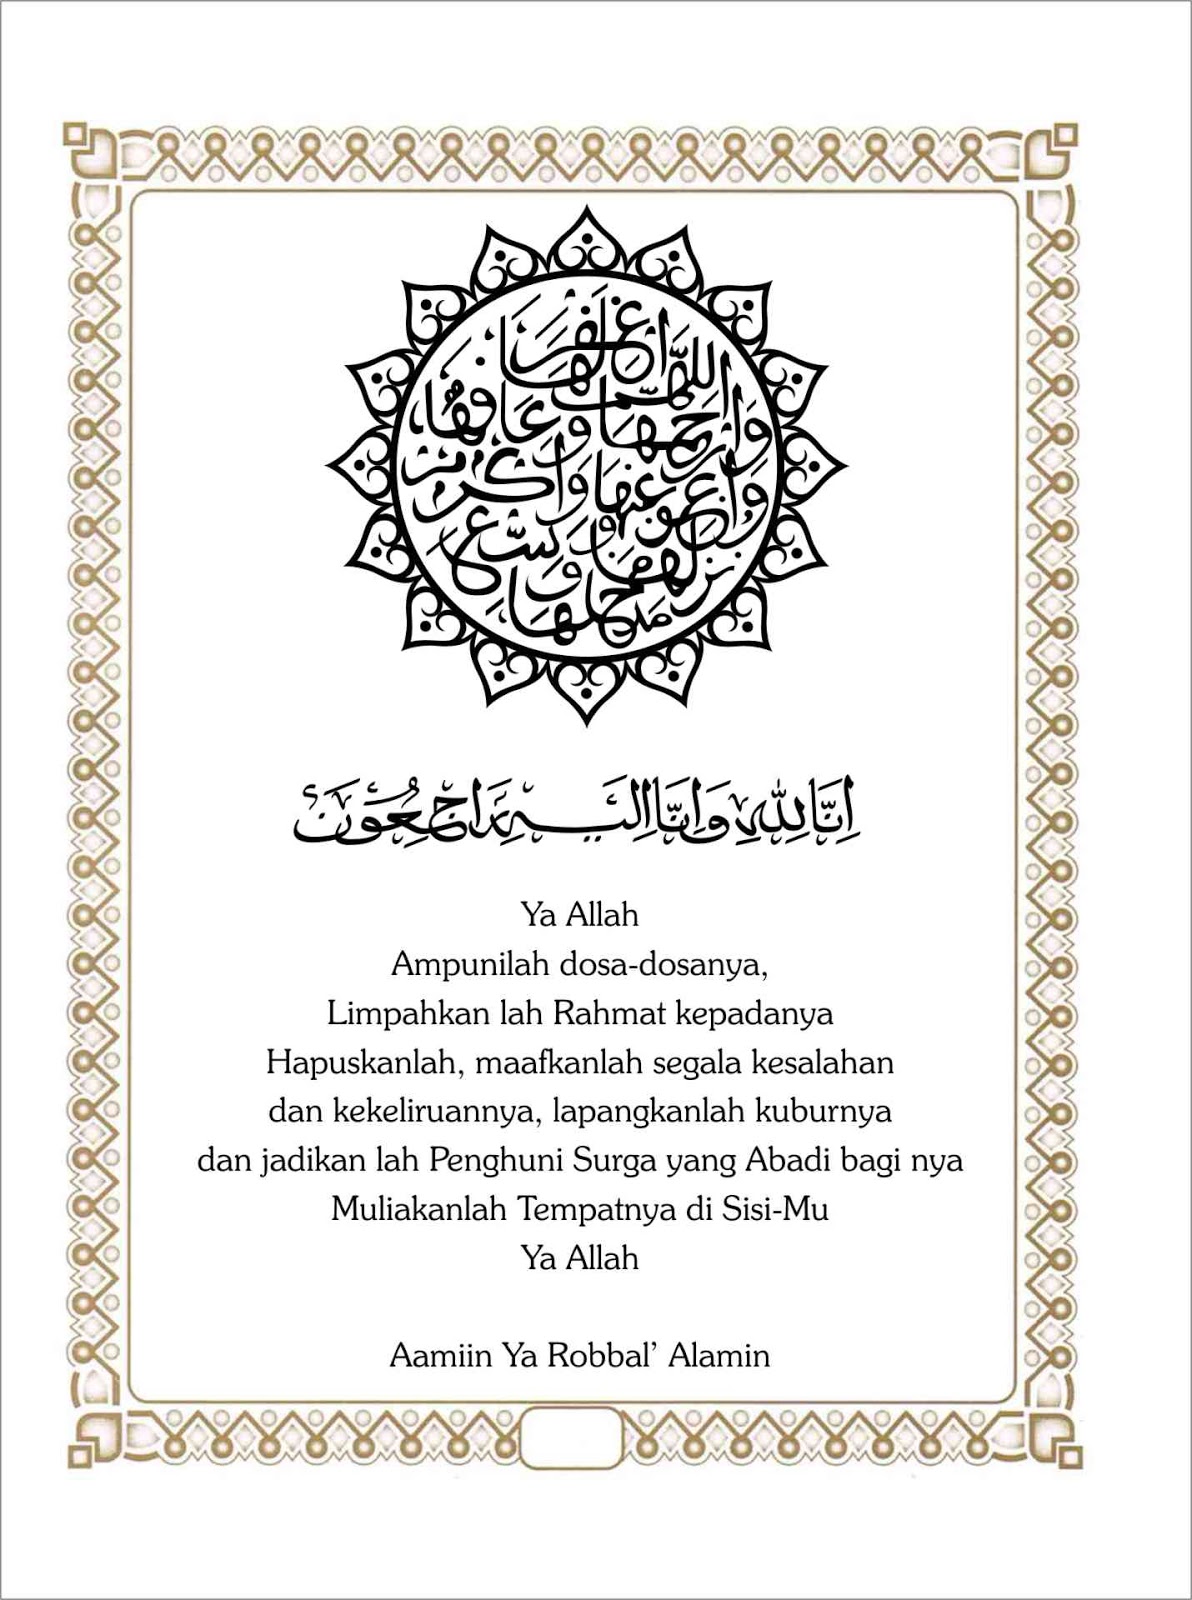 اللهم اغفر لها
وارحمها وعافها
واعف عنها واكرم
نزلها ووسع
مدخلها
إنا لله وإنا إليه راجعون
Ya Allah
Ampunilah dosa-dosanya,
Limpahkan lah Rahmat kepadanya
Hapuskanlah, maafkanlah segala kesalahan
dan kekeliruannya, lapangkanlah kuburnya
dan jadikan lah Penghuni Surga yang Abadi bagi nya
Muliakanlah Tempatnya di Sisi-Mu
Ya Allah
Aamiin Ya Robbal’ Alamin